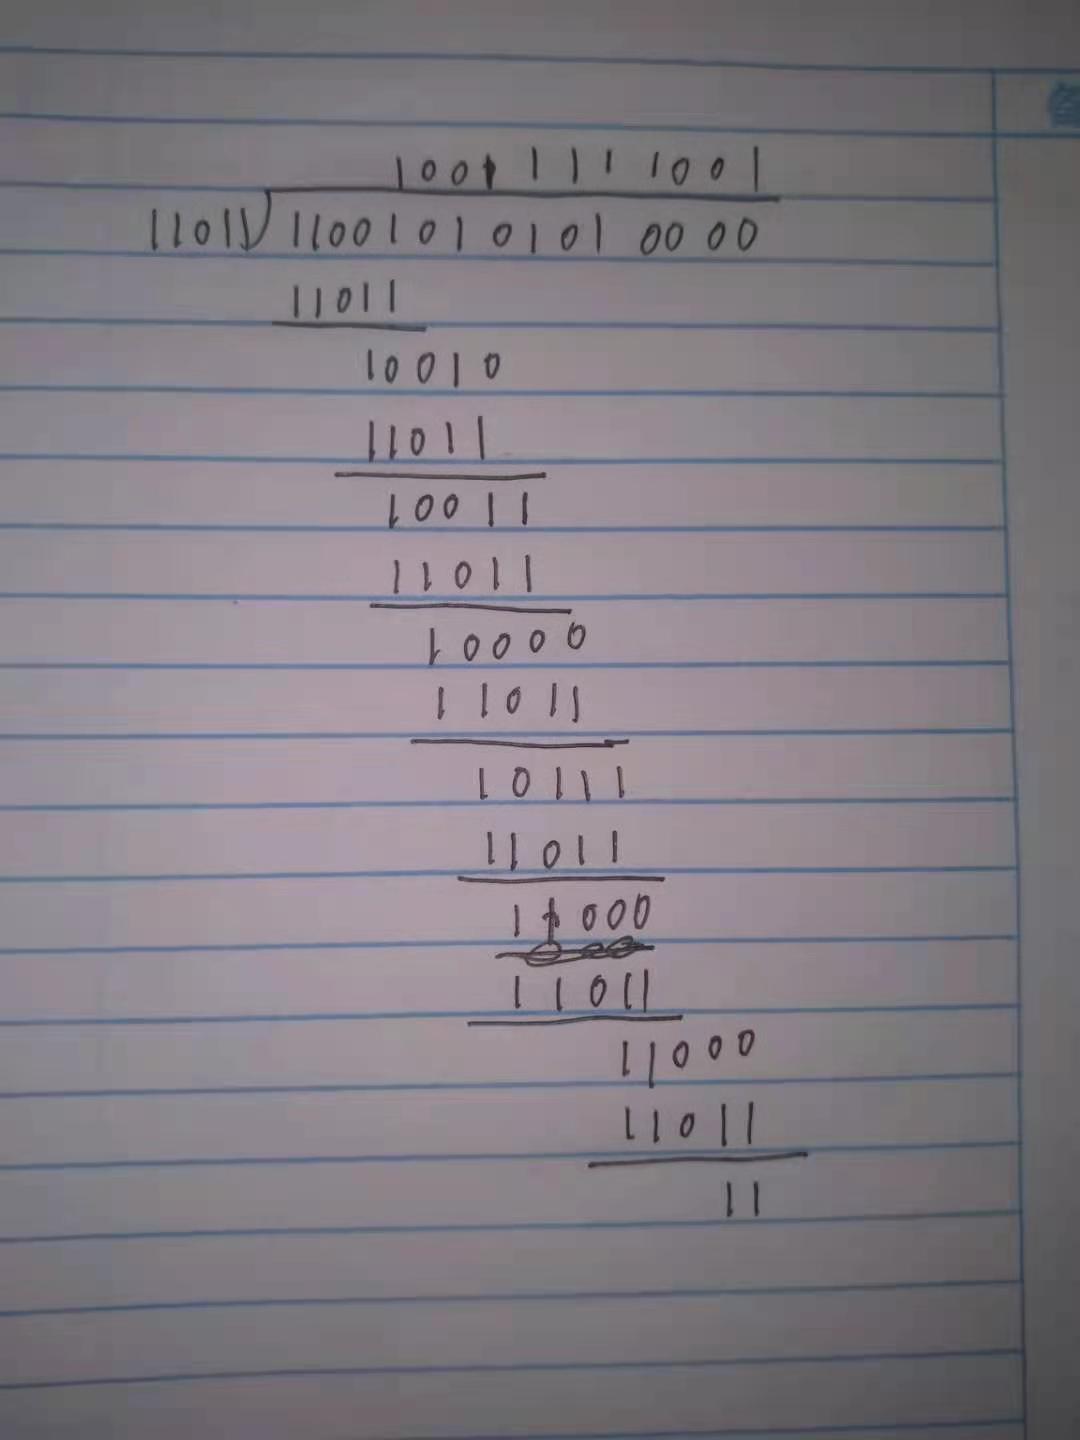 10011111001
11011 110010101010000
11011
10010
11011
10011
11011
10000
11011
10111
11011
11000
11011
11000
11011
11